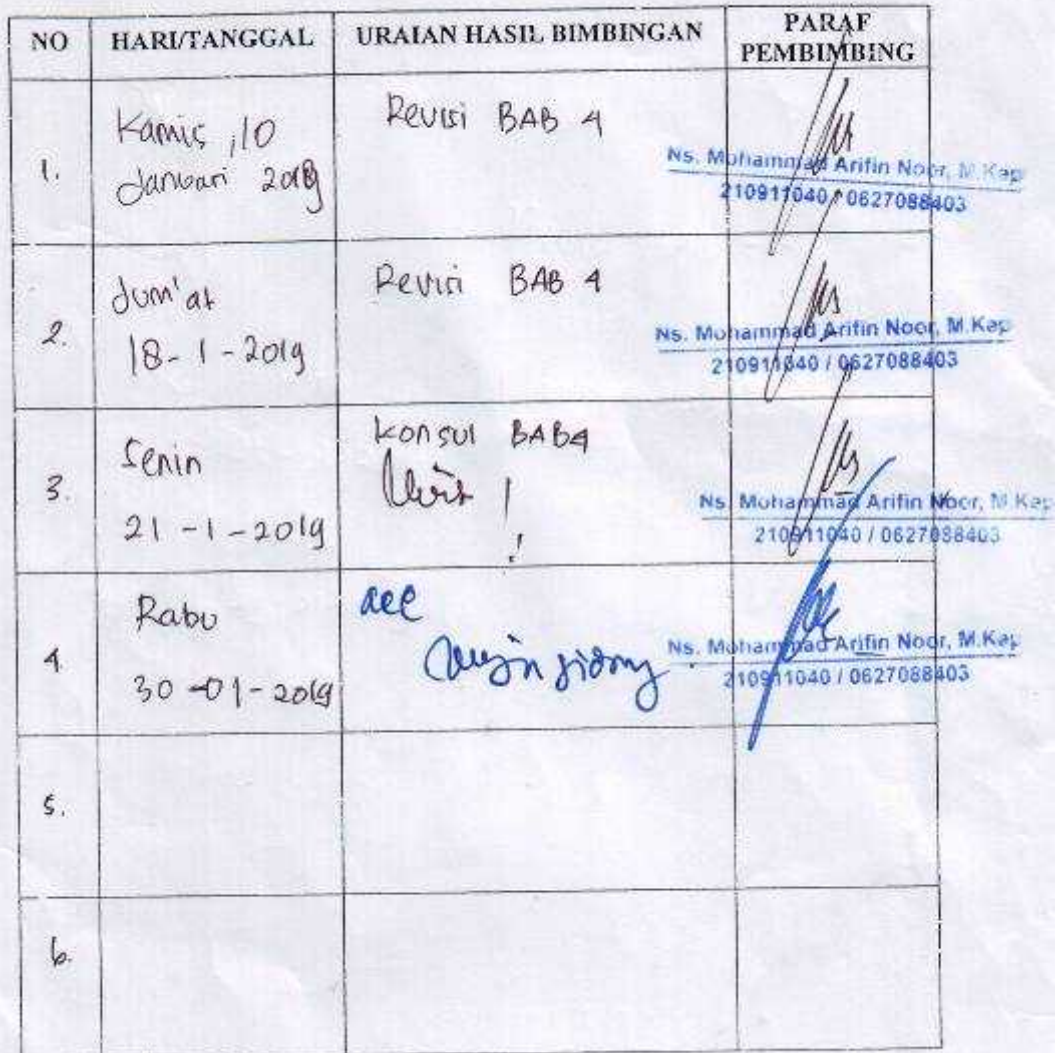 NO HARI/TANGGAL URAIAN HASIL BIMBINGAN PARAF PEMBIMBING
1. Kamis, 10 Januari 2019
Revisi BAB 4
Ns. Mohammad Arifin Noor, M.Kep
210911040 / 0627088403
2. Jum'at
18-1-2019
Revisi BAB 4
Ns. Mohammad Arifin Noor, M.Kep
210911040 / 0627088403
3. Senin
21-1-2019
Konsul BAB 4
Ns. Mohammad Arifin Noor, M.Kep
210911040 / 0627088403
4. Rabu
30-01-2019
acc
sidang
Ns. Mohammad Arifin Noor, M.Kep
210911040 / 0627088403
5.
6.